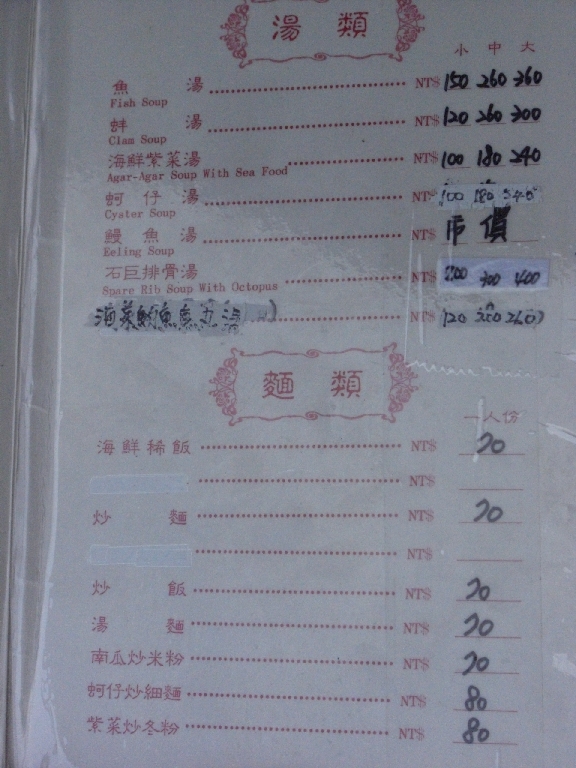 湯類
小 中 大
魚湯 NT$ 150 260 360
Fish Soup
蚌湯 NT$ 120 260 300
Clam Soup
海鮮紫菜湯 NT$ 100 180 240
Agar-Agar Soup With Sea Food
蚵仔湯 NT$ 100 180 240
Cyster Soup
鰻魚湯 NT$ 市價
Eeling Soup
石巨排骨湯 NT$ 200 300 400
Spare Rib Soup With Octopus
海菜 魚 湯 120 200 260
麵類
一人份
海鮮稀飯 NT$ 70
NT$
炒麵 NT$ 70
NT$
炒飯 NT$ 70
湯麵 NT$ 70
南瓜炒米粉 NT$ 70
蚵仔炒細麵 NT$ 80
紫菜炒冬粉 NT$ 80